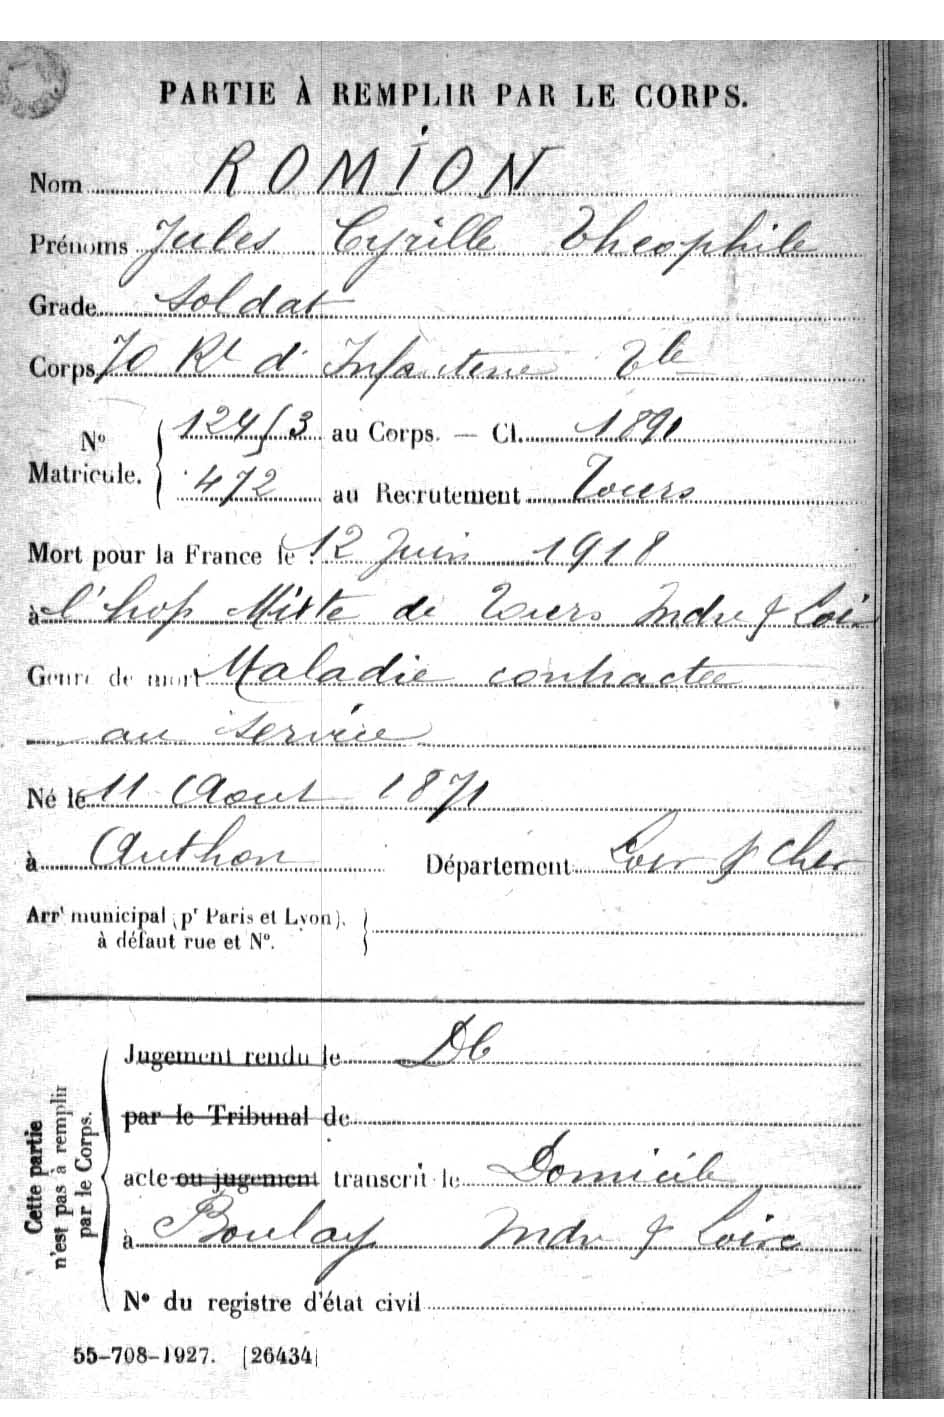 PARTIE À REMPLIR PAR LE CORPS.
Nom ROMION
Prénoms Jules Cyrille Theophile
Grade Soldat
Corps 70 Rt d'Infanterie Tle
No Matricule. 124/3 au Corps. — Cl. 1891
472 au Recrutement Tours
Mort pour la France le 12 Juin 1918
à l'hop Mixte de Tours Indre & Loir
Genre de mort Maladie contractée
au service
Né le 11 Aout 1871
à Authon Département Loir & Cher
Arrt municipal (pr Paris et Lyon).
à défaut rue et No.
Cette partie
n'est pas à remplir
par le Corps.
Jugement rendu le Dc
par le Tribunal de
acte ou jugement transcrit le Domicile
à Boulay Indre & Loire
No du registre d'état civil
55-708-1927. [26434]